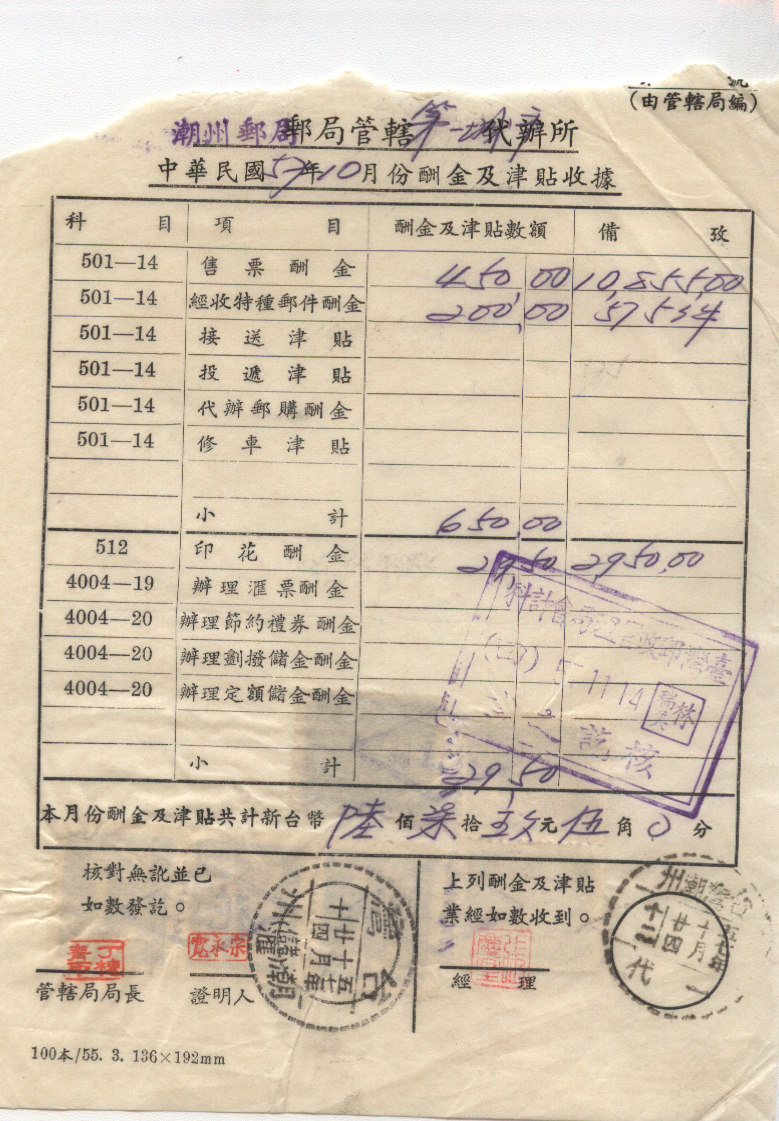 (由管轄局編)
潮州郵局郵局管轄第一城中代辦所
中華民國57年10月份酬金及津貼收據
科目 項目 酬金及津貼數額 備攷
501—14 售票酬金 450,00 10,855,00
501—14 經收特種郵件酬金 200,00 575
501—14 接送津貼
501—14 投遞津貼
501—14 代辦郵購酬金
501—14 修車津貼
小計 650,00
512 印花酬金 29 50 2950,00
4004—19 辦理滙票酬金
4004—20 辦理節約禮券酬金
4004—20 辦理劃撥儲金酬金
4004—20 辦理定額儲金酬金
臺灣郵政管理局會計科
(四) 57.11.14
林瑞
核訖
小計 29 50
本月份酬金及津貼共計新台幣陸佰柒拾玖元伍角0分
核對無訛並已
如數發訖。
上列酬金及津貼
業經如數收到。
管轄局局長
宗永寬
證明人
臺灣
五十七年
十月
廿四
潮州
經理
台灣潮州
五七年
十月
廿四
十二
代
100本/55. 3. 136×192mm